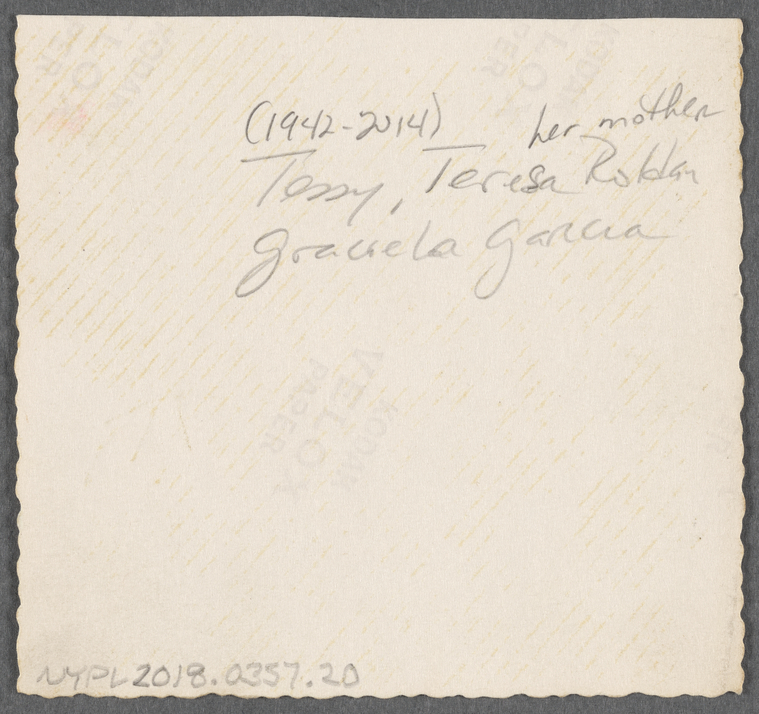 (1942-2014) her mother
Tessy, Teresa Roldan
Graciela Garcia
KODAK
VELOX
PAPER
NYPL2018.0357.20